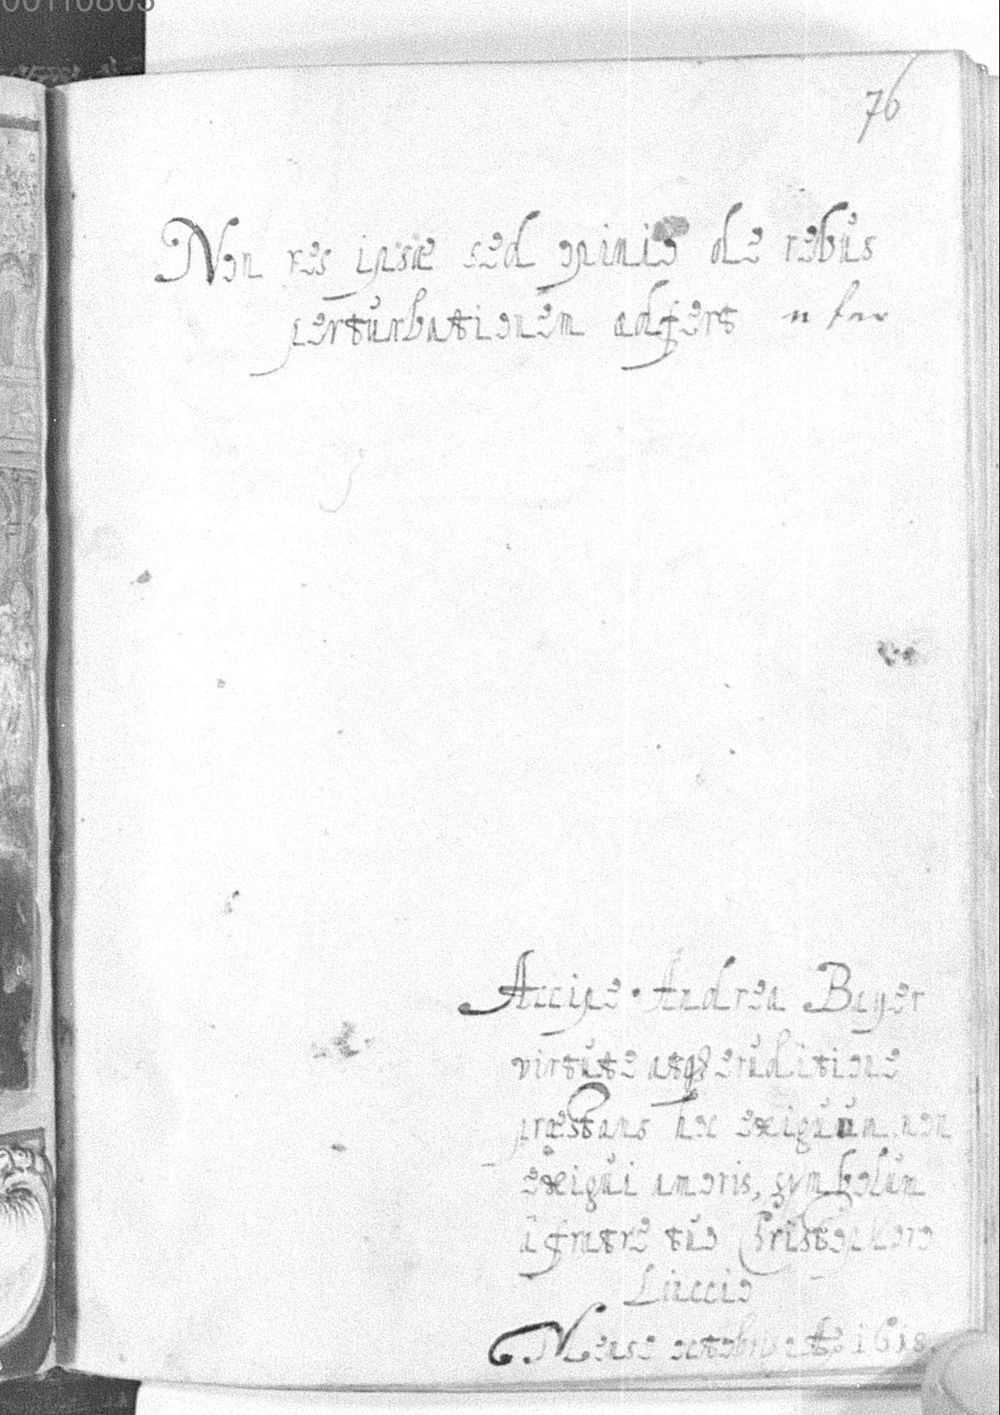 00110803
76
Non res ipsæ sed opinio de rebus
perturbationem adfert
Accipe Andrea Bayer
virtute atq₃ eruditione
præstans hoc exiguum non
exigui amoris, symbolum
à fratre tuo Christophoro
Luccio
Mense octobri 1618